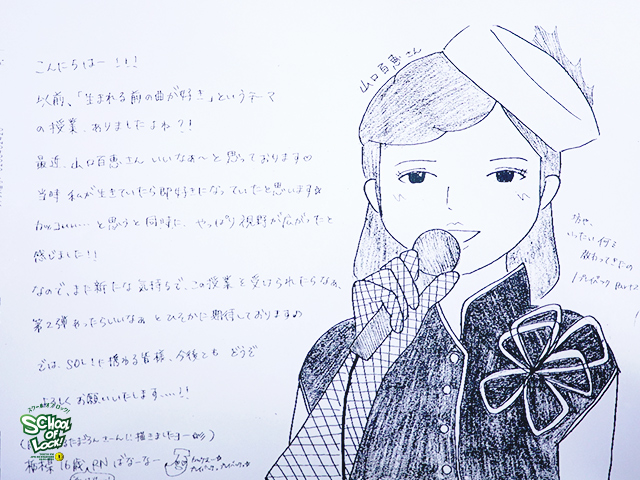 こんにちはー!!!
以前、「生まれる前の曲が好き」というテーマ
の授業、ありましたよね?!
最近、山口百恵さん いいなぁ〜と思っております
当時 私が生きていたら即好きになっていたと思います
カッコいい…と思うと同時に、やっぱり視野が広がったと
感じました!!
なので、また新たな気持ちで、この授業を受けられたらなぁ、
第2弾あったらいいなぁ とひそかに期待しております
では、SOL!に携わる皆様、今後とも どうぞ
よろしく お願いいたします…!!
描きました
16歳 RN ばなーなー
山口百恵さん
坊や、
いったい何を
教わってきたの
プレイバック Part2
スクールオブロック!
SCHOOL
OF
LOCK!